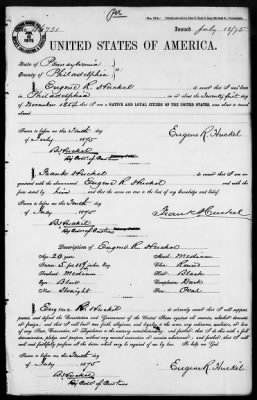 Issued July 12/75
UNITED STATES OF AMERICA.
State of Pennsylvania
County of Philadelphia
I, Eugene R. Huckel, do swear that I was born in
Philadelphia on or about the Twenty first day
of November 1854, that I am a NATIVE AND LOYAL CITIZEN OF THE UNITED STATES, and about to travel
abroad.
Sworn to before me this Tenth day
of July, 1875
Eugene R. Huckel
I, Frank Huckel, do swear that I am
acquainted with the above-named Eugene R. Huckel and
with the facts above stated by him, and that the same are true to the best of my knowledge and belief.
Sworn to before me this Tenth day
of July, 1875
Frank Huckel
Description of Eugene R. Huckel
Age: 20 years
Mouth: Medium
Stature: 5 feet
Chin: Round
Forehead: Medium
Hair: Black
Eyes: Blue
Complexion: Dark
Nose: Straight
Face: Oval
I, Eugene R. Huckel, do solemnly swear that I will support,
protect, and defend the Constitution and Government of the United States against all enemies, whether domestic
or foreign; and that I will bear true faith, allegiance, and loyalty to the same, any ordinance, resolution, or law
of any State, Convention, or Legislature to the contrary notwithstanding; and further, that I do this with a full
determination, pledge, and purpose, without any mental reservation or evasion whatsoever; and further, that I will
well and faithfully perform all the duties which may be required of me by law. So help me God.
Sworn to before me this Tenth day
of July, 1875
Eugene R. Huckel